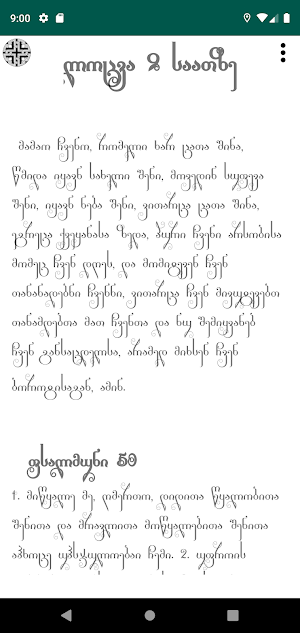 9:00
ლოცვა 2 საათზე
მამაო ჩვენო, რომელი ხარ ცათა შინა,
წმიდა იყავნ სახელი შენი, მოვედინ სუფევა
შენი, იყავნ ნება შენი, ვითარცა ცათა შინა,
ეგრეცა ქვეყანასა ზედა, პური ჩვენი არსობისა
მომეც ჩვენ დღეს, და მომიტევენ ჩვენ
თანანადებნი ჩვენნი, ვითარცა ჩვენ მივუტევებთ
თანამდებთა მათ ჩვენთა და ნუ შემიყვანებ
ჩვენ განსაცდელსა, არამედ მიხსენ ჩვენ
ბოროტისაგან, ამინ.
ფსალმუნი 50
1. მიწყალე მე, ღმერთო, დიდითა წყალობითა
შენითა და მრავლითა მოწყალებითა შენითა
აჰხოცე უჰსჯულოებაი ჩემი. 2. უფროის